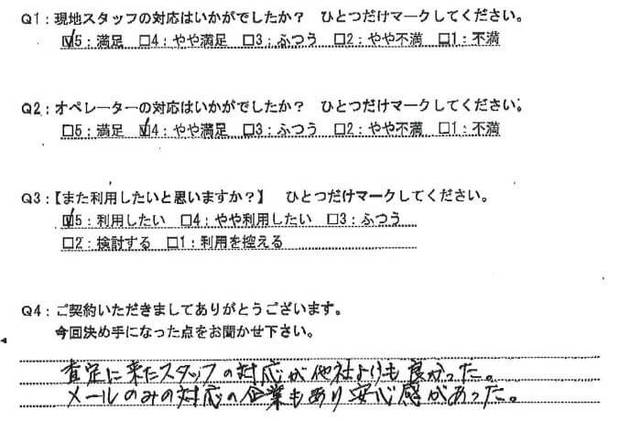 Q1：現地スタッフの対応はいかがでしたか？ ひとつだけマークしてください。
☑5：満足 □4：やや満足 □3：ふつう □2：やや不満 □1：不満
Q2：オペレーターの対応はいかがでしたか？ ひとつだけマークしてください。
□5：満足 ☑4：やや満足 □3：ふつう □2：やや不満 □1：不満
Q3：【また利用したいと思いますか？】 ひとつだけマークしてください。
☑5：利用したい □4：やや利用したい □3：ふつう
□2：検討する □1：利用を控える
Q4：ご契約いただきましてありがとうございます。
今回決め手になった点をお聞かせ下さい。
査定に来たスタッフの対応が他社よりも良かった。
メールのみの対応の企業もあり安心感があった。